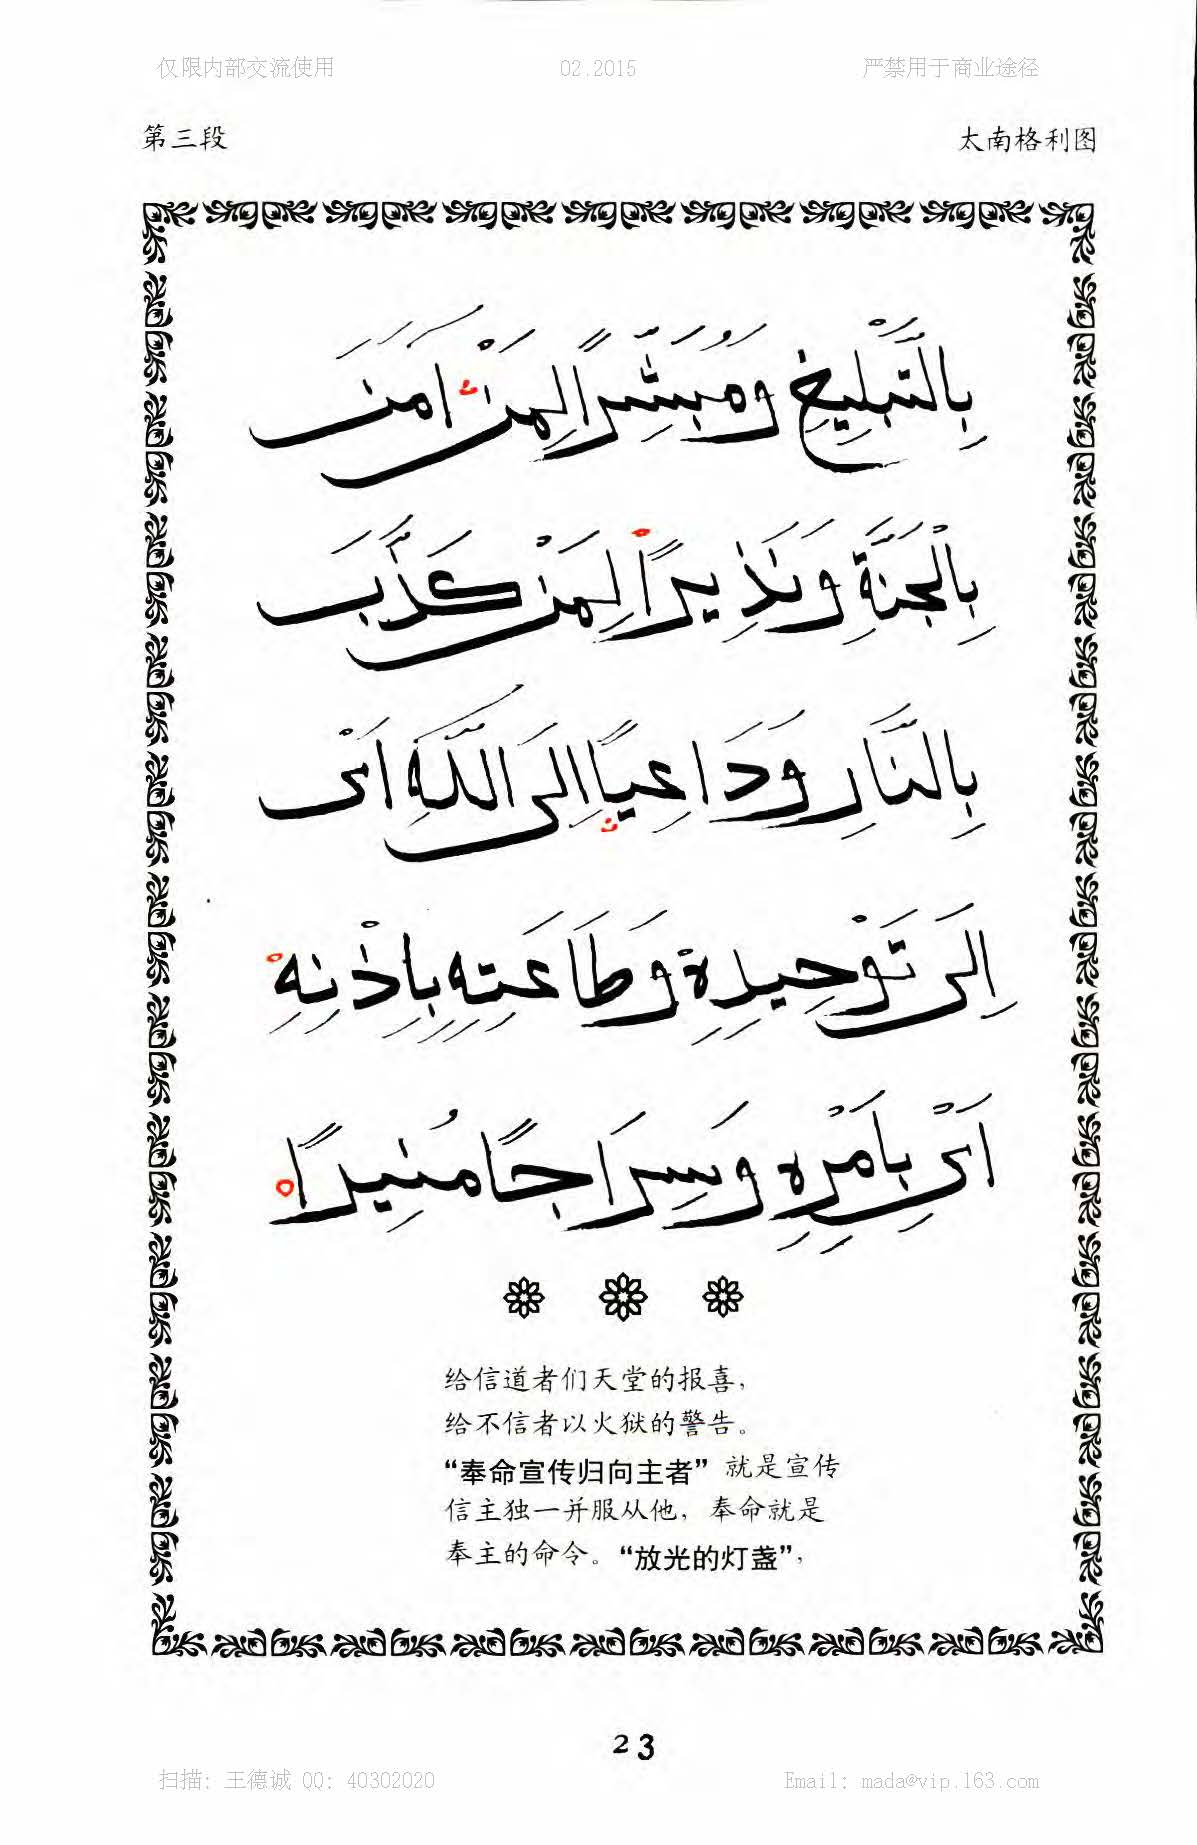 仅限内部交流使用 02.2015 严禁用于商业途径
第三段 太南格利图
بِالتَّبْلِيغِ وَمُبَشِّرًا لِمَنْ اٰمَنَ
بِالْجَنَّةِ وَنَذِيرًا لِمَنْ كَذَّبَ
بِالنَّارِ وَدَاعِيًا اِلَى اللَّهِ اَىْ
اِلَى تَوْحِيدِهِ وَطَاعَتِهِ بِاِذْنِهِ
اَىْ بِاَمْرِهِ وَسِرَاجًا مُنِيرًا
给信道者们天堂的报喜，
给不信者以火狱的警告。
“奉命宣传归向主者”就是宣传
信主独一并服从他，奉命就是
奉主的命令。“放光的灯盏”，
23
扫描: 王德诚 QQ: 40302020 Email: mada@vip.163.com